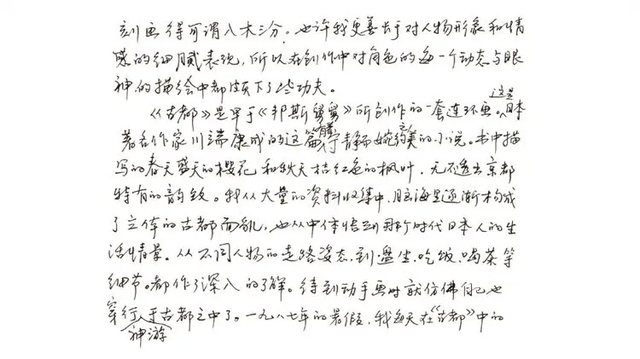 刻画得可谓入木三分。也许我更善长于对人物形象和情
感的细腻表现，所以在创作中对角色的每一个动态与眼
神的描绘中都颇下了些功夫。
《古都》是早于《邦斯舅舅》所创作的一套连环画。这是日本
著名作家川端康成的这篇 静婉约美的小说。书中描
写的春天盛开的樱花，和秋天桔红色的枫叶，无不透出京都
特有的韵致。我从大量的资料收集中，脑海里逐渐构成
了立体的古都面貌，也从中体悟到那个时代日本人的生
活情景。从不同人物的走路姿态，到盘坐、吃饭、喝茶等
细节，都作了深入的了解。待到动手画时就仿佛自己也
穿行神游于古都之中了。一九八七年的暑假，我每天在《古都》中的